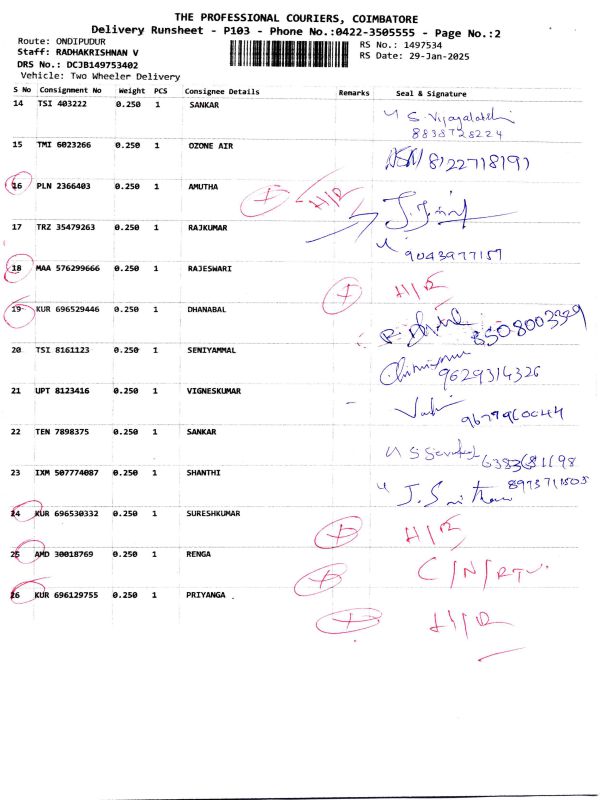 THE PROFESSIONAL COURIERS, COIMBATORE
Delivery Runsheet - P103 - Phone No.:0422-3505555 - Page No.:2
Route: ONDIPUDUR RS No.: 1497534
Staff: RADHAKRISHNAN V RS Date: 29-Jan-2025
DRS No.: DCJB149753402
Vehicle: Two Wheeler Delivery
S No Consignment No Weight PCS Consignee Details Remarks Seal & Signature
14 TSI 403222 0.250 1 SANKAR S. Vijayalakshmi
8838728224
15 TMI 6023266 0.250 1 OZONE AIR 8122718191
16 PLN 2366403 0.250 1 AMUTHA H/R
17 TRZ 35479263 0.250 1 RAJKUMAR
9043977157
18 MAA 576299666 0.250 1 RAJESWARI H/R
19 KUR 696529446 0.250 1 DHANABAL 8508003329
20 TSI 8161123 0.250 1 SENIYAMMAL
9629314326
21 UPT 8123416 0.250 1 VIGNESKUMAR
9677960044
22 TEN 7898375 0.250 1 SANKAR
23 IXM 507774087 0.250 1 SHANTHI
24 KUR 696530332 0.250 1 SURESHKUMAR H/R
25 AMD 30018769 0.250 1 RENGA C/N/RTN.
26 KUR 696129755 0.250 1 PRIYANGA . H/R